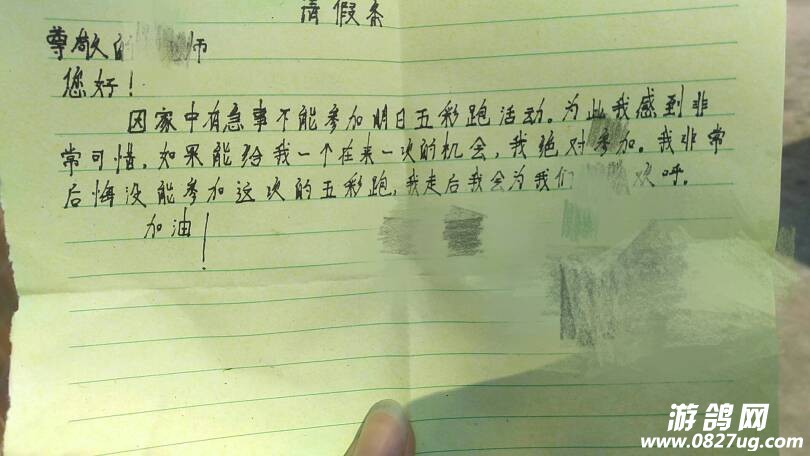 请假条
尊敬的 师
您好！
因家中有急事不能参加明日五彩跑活动。为此我感到非
常可惜。如果能给我一个在来一次的机会，我绝对参加。我非常
后悔没能参加这次的五彩跑，我走后我会为我们 欢呼。
加油！
游鸽网
www.0827ug.com